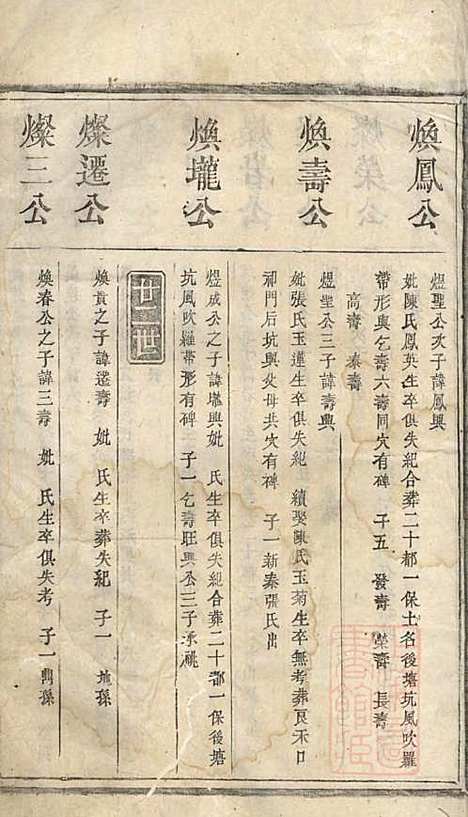 煥鳳公
煜聖公次子諱鳳興
妣陳氏鳳英生卒俱失紀合葬二十都一保土名後塘坑風吹羅
帶形與乞壽六壽同穴有碑 子五 發壽 榮壽 長壽
高壽 泰壽
煥壽公
煜聖公三子諱壽興
妣張氏玉蓮生卒俱失紀 續娶陳氏玉菊生卒無考葬良禾口
神門后坑與父母共穴有碑 子一新泰張氏出
煥壠公
煜成公之子諱壠興妣 氏生卒俱失紀合葬二十都一保後塘
坑風吹羅帶形有碑 子一乞壽旺興公三子承祧
廿一世
燦遷公
煥貴之子諱遷壽 妣 氏生卒葬失紀 子一 地孫
燦三公
煥春公之子諱三壽 妣 氏生卒俱失考 子一 興孫